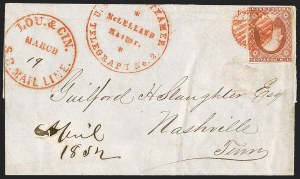 LOU. & CIN.
MARCH
19
S. D. MAIL LINE.
U. S. M. STEAMER
McLELLAND
Master.
TELEGRAPH No. 2.
Guilford H Slaughter Esq
Nashville
Tenn
April
1852